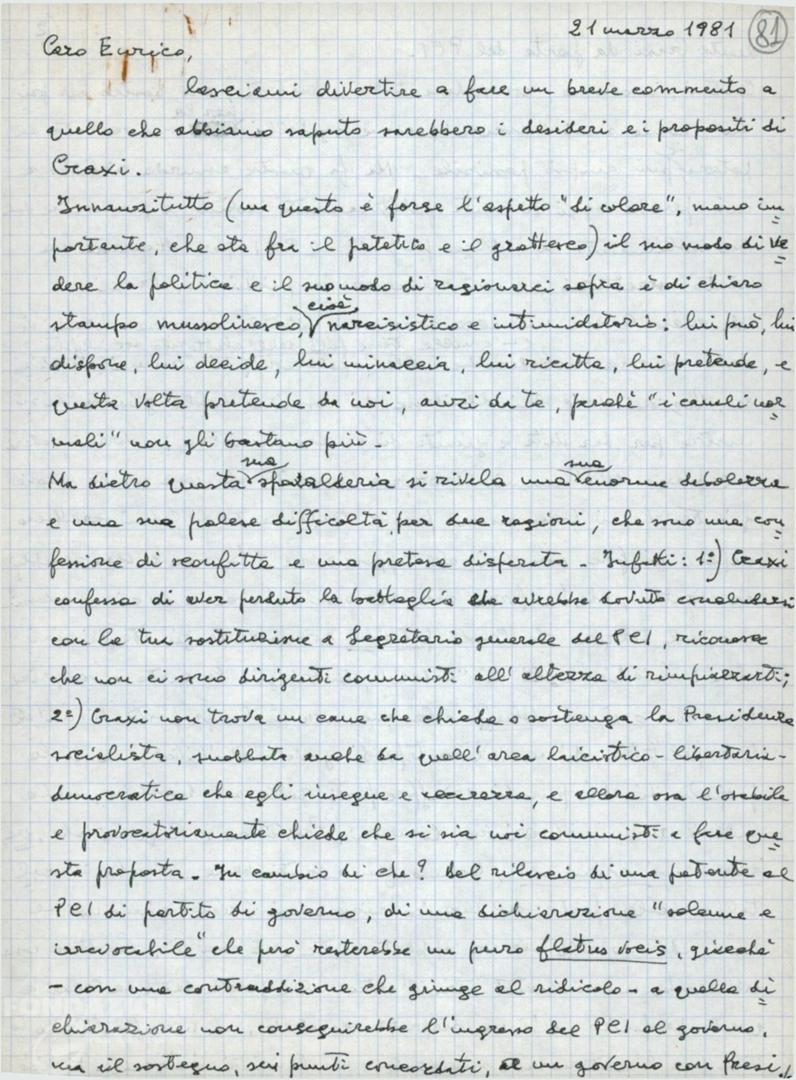 21 marzo 1981 81
Caro Enrico,
lasciami divertire a fare un breve commento a
quello che abbiamo saputo sarebbero i desideri e i propositi di
Craxi.
Innanzitutto (ma questo è forse l'aspetto "di colore", meno im=
portante, che sta fra il patetico e il grottesco) il suo modo di ve=
dere la politica e il suo modo di ragionarci sopra è di chiaro
stampo mussolinesco, cioè narcisistico e intimidatorio: lui può, lui
dispone, lui decide, lui minaccia, lui ricatta, lui pretende, e
questa volta pretende da noi, anzi da te, perché "i canali nor=
mali" non gli bastano più.
Ma dietro questa sua spavalderia si rivela una sua enorme debolezza
e una sua palese difficoltà per due ragioni, che sono una con=
fessione di sconfitta e una pretesa disperata. Infatti: 1°) Craxi
confessa di aver perduto la battaglia che avrebbe dovuto concludersi
con la tua sostituzione a Segretario generale del PCI, riconosce
che non ci sono dirigenti comunisti all'altezza di rimpiazzarti;
2°) Craxi non trova un cane che chieda o sostenga la Presidenza
socialista, snobbata anche da quell'area laicistico-libertaria-
democratica che egli insegue e carezza, e allora osa l'osabile
e provocatoriamente chiede che si sia noi comunisti a fare que=
sta proposta. In cambio di che? Del rilascio di una patente al
PCI di partito di governo, di una dichiarazione "solenne e
irrevocabile" che però resterebbe un puro flatus vocis, giacché
- con una contraddizione che giunge al ridicolo - a quella di=
chiarazione non conseguirebbe l'ingresso del PCI al governo,
ma il sostegno, sui punti concordati, a un governo con Presi./.